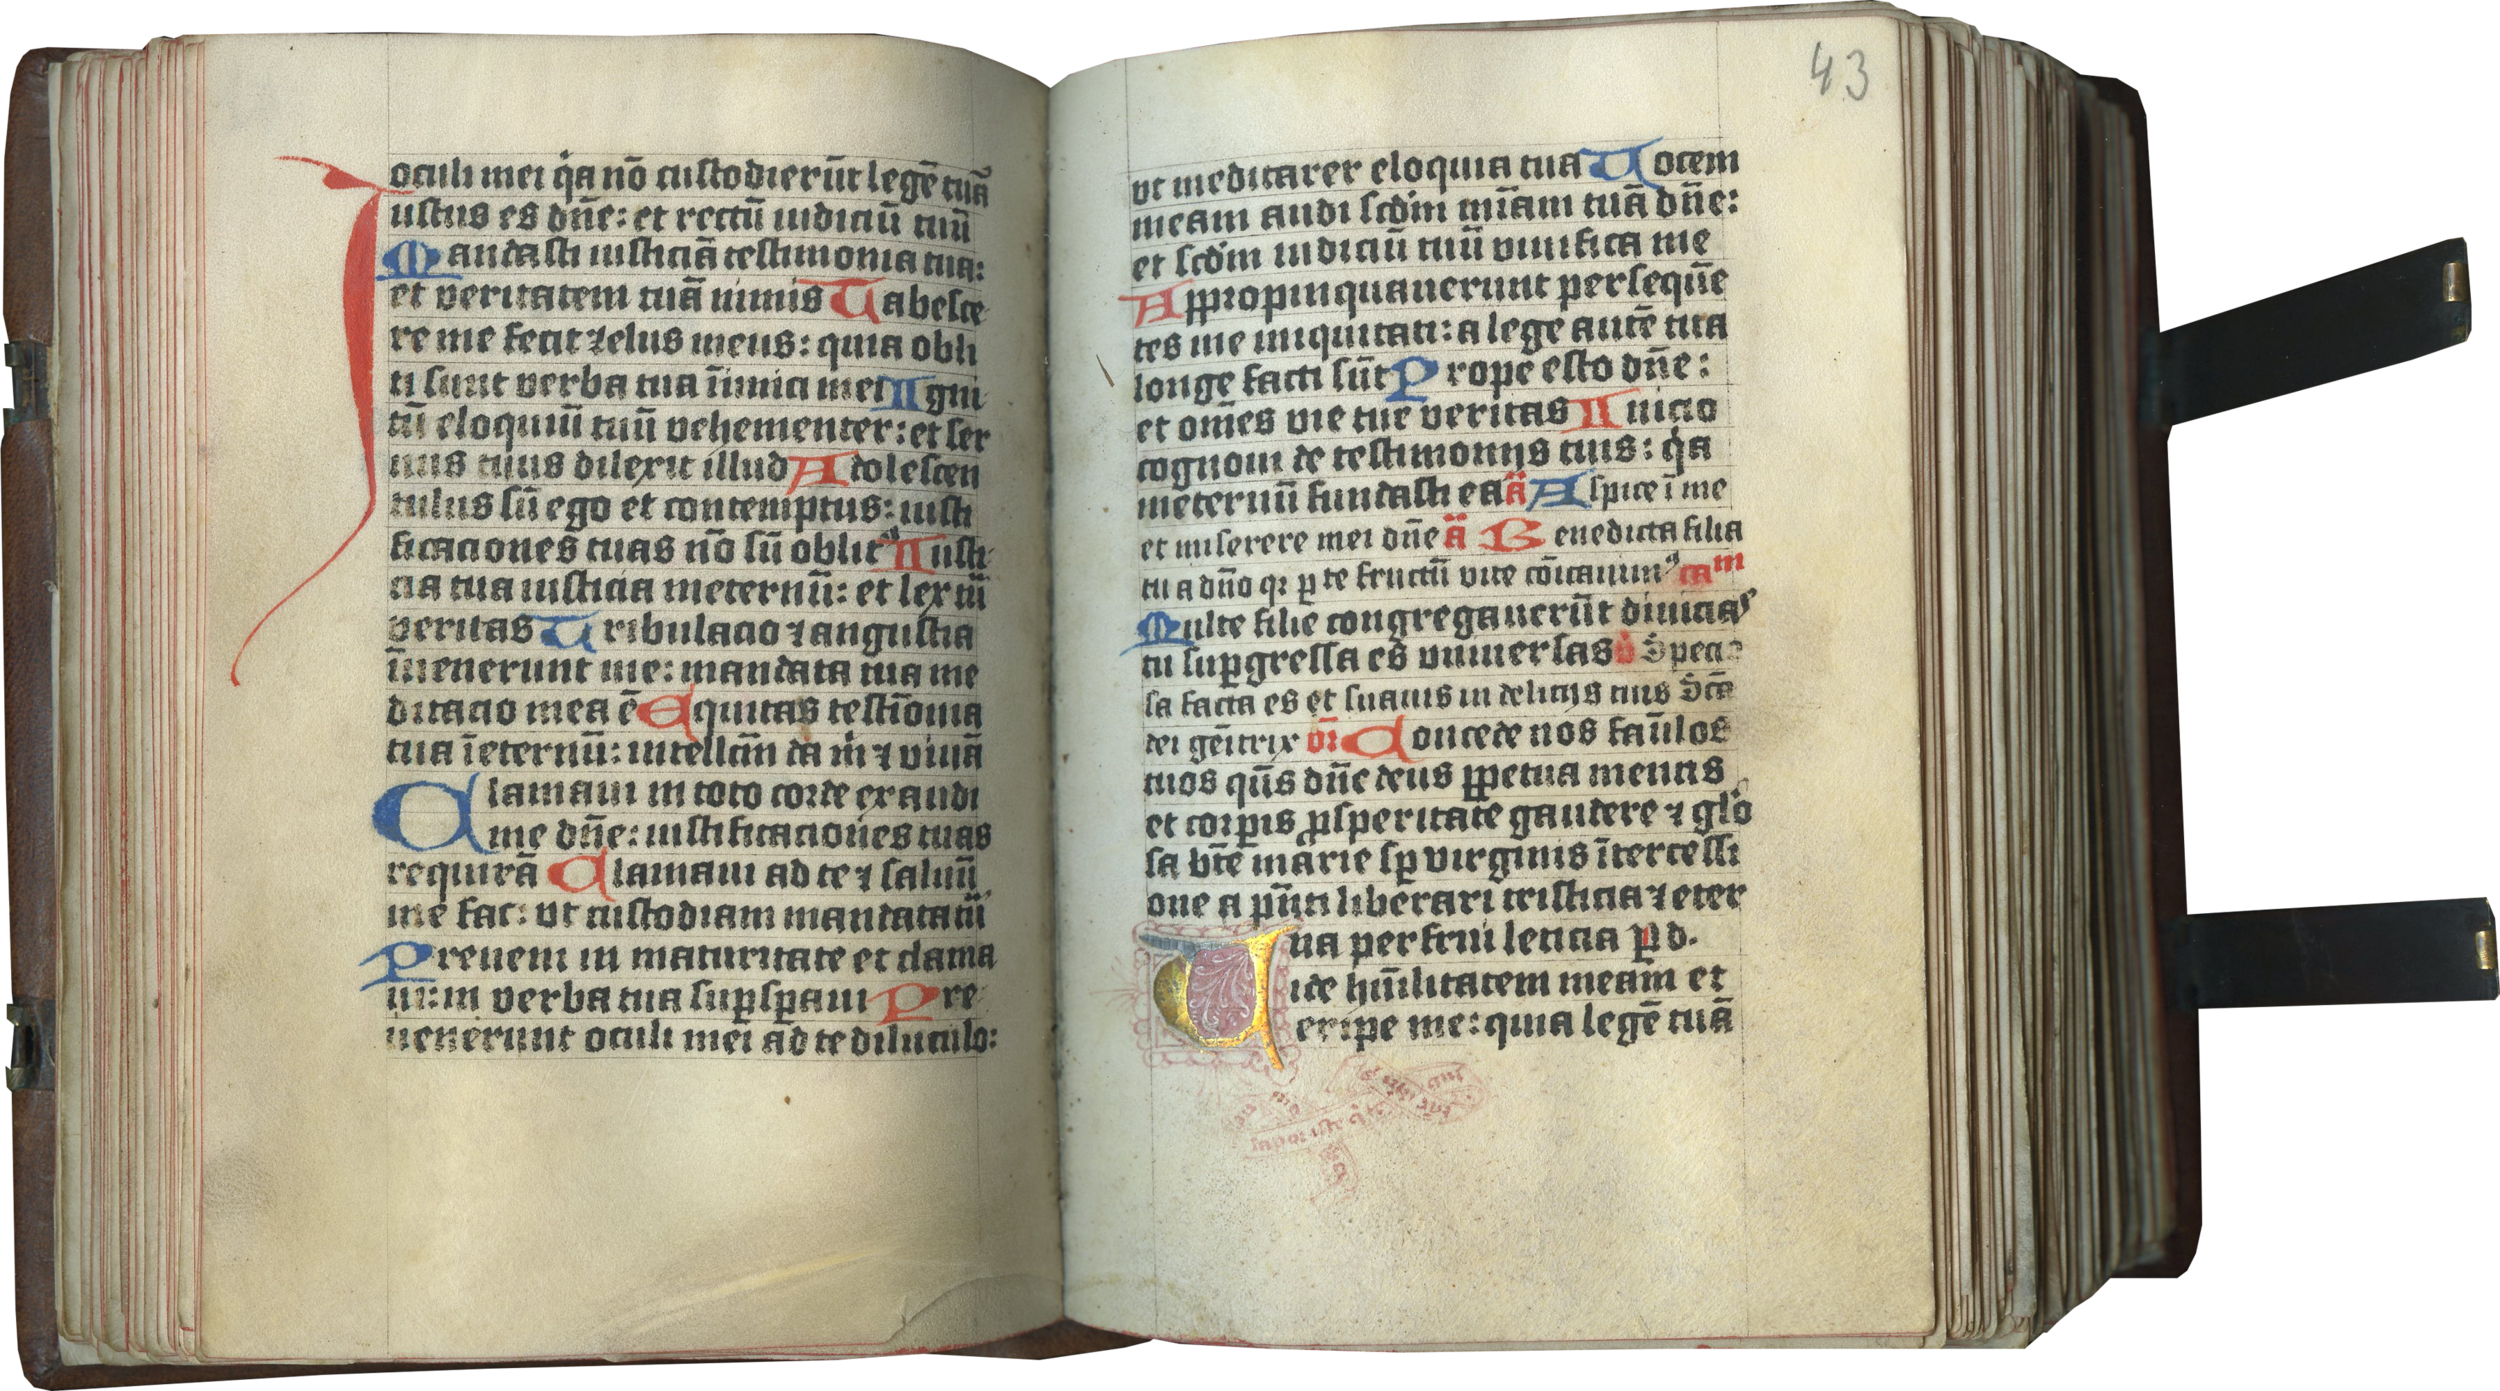 oculi mei q̇a nō custodierūt legē tuā
Iustus es dn̄e: et rectū iudiciū tuū
Mandasti iusticiā testimonia tua:
et veritatem tuā nimis Tabesce
re me fecit zelus meus: quia obli
ti sunt verba tua īimici mei Igni
tū eloquiū tuū vehementer: et ser
uus tuus dilexit illud Adolescen
tulus sū ego et contemptus: iusti
ficaciones tuas nō sū oblitꝰ Iusti
cia tua iusticia ineternū: et lex tū
veritas Tribulacio ⁊ angustia
īuenerunt me: mandata tua me
ditacio mea ē Equitas testīonia
tua īeternū: intellcm̄ da ṁ ⁊ viuā
Clamaui in toto corde exaudi
me dn̄e: iustificaciones tuas
requirā Clamaui ad te ⁊ saluū
me fac: vt custodiam mandata tū
Preueni in maturitate et clama
ui: in verba tua suꝑsꝑaui Pre
uenerunt oculi mei ad te diluculo:
43
vt meditarer eloquia tua Vocem
meam audi scd̄m mīam tuā dn̄e:
et scd̄m iudiciū tuū viuifica me
Appropinquauerunt persequē
tes me iniquitati: a lege autē tua
longe facti sūt Prope esto dn̄e:
et om̄es vie tue veritas Inicio
cognoui de testimonijs tuis: q̇a
ineternū fundasti ea ā Aspice ī me
et miserere mei dn̄e ā Benedicta filia
tu a dn̄o qꝛ ꝑ te fructū vite cōicauimꝰ cam
Multe filie congregauerūt diuicias
tu suꝑgressa es vniuersas Specio
sa facta es et suauis in delicijs tuis Scā
dei gēitrix or̄ Concede nos faūlos
tuos qs̄ dn̄e deus ꝑpetua mentis
et corꝑis ꝓsperitate gaudere ⁊ glō
sa bt̄e marie sꝑ virginis ītercessi
one a pn̄ti liberari tristicia ⁊ eter
na perfrui leticia ꝑ d.
Vide hūilitatem meam et
eripe me: quia legē tuā